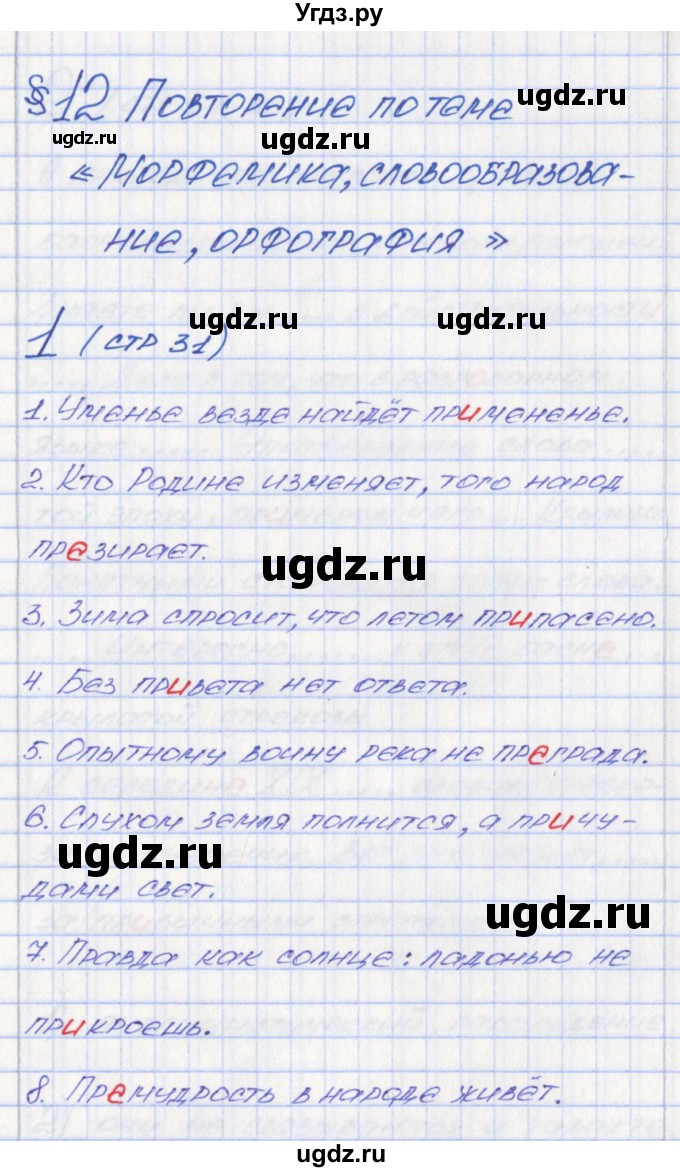 Угдз.ру
§12 Повторение по теме
«Морфемика, словообразова-
ние, орфография»
1 (стр 31)
1. Уменье везде найдёт применение.
2. Кто Родине изменяет, того народ
презирает.
3. Зима спросит, что летом припасено.
4. Без привета нет ответа.
5. Опытному воину река не преграда.
6. Слухом земля полнится, а причу-
дами свет.
7. Правда как солнце: ладонью не
прикроешь.
8. Премудрость в народе живёт.
ugdz.ru
ugdz.ru
ugdz.ru
ugdz.ru
ugdz.ru
ugdz.ru
ugdz.ru
ugdz.ru
ugdz.ru